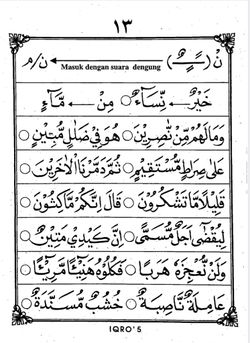 ١٣
نْ (ــًــٍــٌ) ← Masuk dengan suara dengung ← ن/م
خَيْرٌ ← نِّسَاءٌ ○ مِنْ ← مَّاءٍ
وَمَالَهُمْ مِّنْ نّٰصِرِيْنَ ○ هُوَ فِيْ ضَلٰلٍ مُّبِيْنٍ ○
عَلٰى صِرَاطٍ مُّسْتَقِيْمٍ ○ ثُمَّ دَمَّرْنَا الْاٰخَرِيْنَ ○
قَلِيْلًا مَّا تَشْكُرُوْنَ ○ قَالَ اِنَّكُمْ مَّاكِثُوْنَ ○
لِيُقْضٰٓى اَجَلٌ مُّسَمًّى ○ اِنَّ كَيْدِيْ مَتِيْنٌ ○
وَلَنْ نُّعْجِزَهٗ هَرَبًا ○ فَكُلُوْهُ هَنِيْٓئًا مَّرِيْٓئًا ○
عَامِلَةٌ نَّاصِبَةٌ ○ خُشُبٌ مُّسَنَّدَةٌ ○
IQRO'5